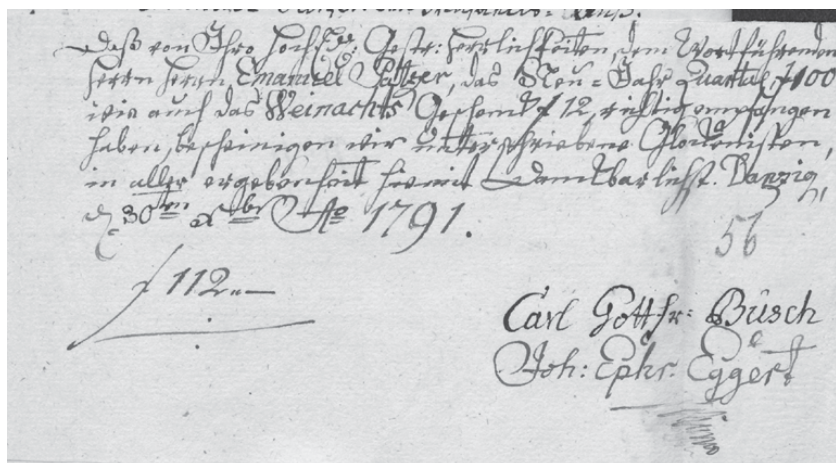 Daß von Ihro Hoch Ede: Gestr: Herrlichkeiten, dem Wortführenden
Herrn Herrn Emanuel, das Neu=Jahr Quartal f 100
wie auch das Weinachts Geschenk f 12, richtig empfangen
haben, bescheinigen wir unterschriebene Glockenisten,
in aller ergebenheit hiemit Danckbarlichst. Danzig,
d. 30ten Xbr Ao 1791.
56
f 112"—
Carl Gottfr: Büsch
Joh: Ephr. Eggert